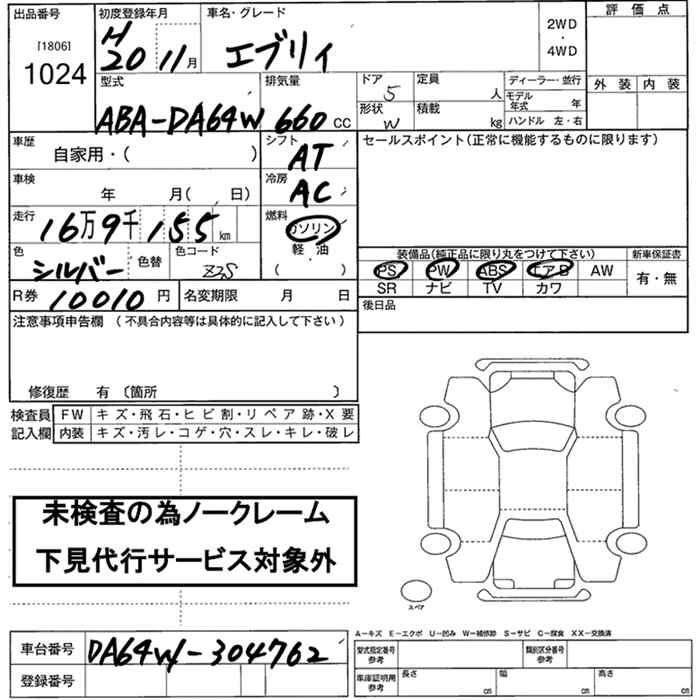 出品番号
[1806]
1024
初度登録年月
H 20 11月
車名・グレード
エブリィ
2WD
・
4WD
評価点
外装 内装
型式
ABA-DA64W
排気量
660 CC
ドア
5
定員
人
形状
W
積載
kg
ディーラー・並行
モデル年式 年
ハンドル 左・右
車歴
自家用・( )
シフト
AT
セールスポイント(正常に機能するものに限ります)
車検
年 月( 日)
冷房
AC
走行
16万9千155km
燃料
ガソリン
軽・油
・
( )
色
シルバー
色替
色コード
Z2S
装備品(純正品に限り丸をつけて下さい)
新車保証書
PS PW ABS エアB AW
SR ナビ TV カワ
有・無
R券
10010円
名変期限 月 日
後日品
注意事項申告欄 (不具合内容等は具体的に記入して下さい)
修復歴 有 〔箇所 〕
検査員記入欄
FW キズ・飛石・ヒビ割・リペア跡・X要
内装 キズ・汚レ・コゲ・穴・スレ・キレ・破レ
未検査の為ノークレーム
下見代行サービス対象外
スペア
A-キズ E-エクボ U-凹み W-補修跡 S-サビ C-腐食 XX-交換済
車台番号
DA64W-304762
登録番号
型式指定番号
参考
類別区分番号
参考
車庫証明用
参考
長さ cm
幅 cm
高さ cm